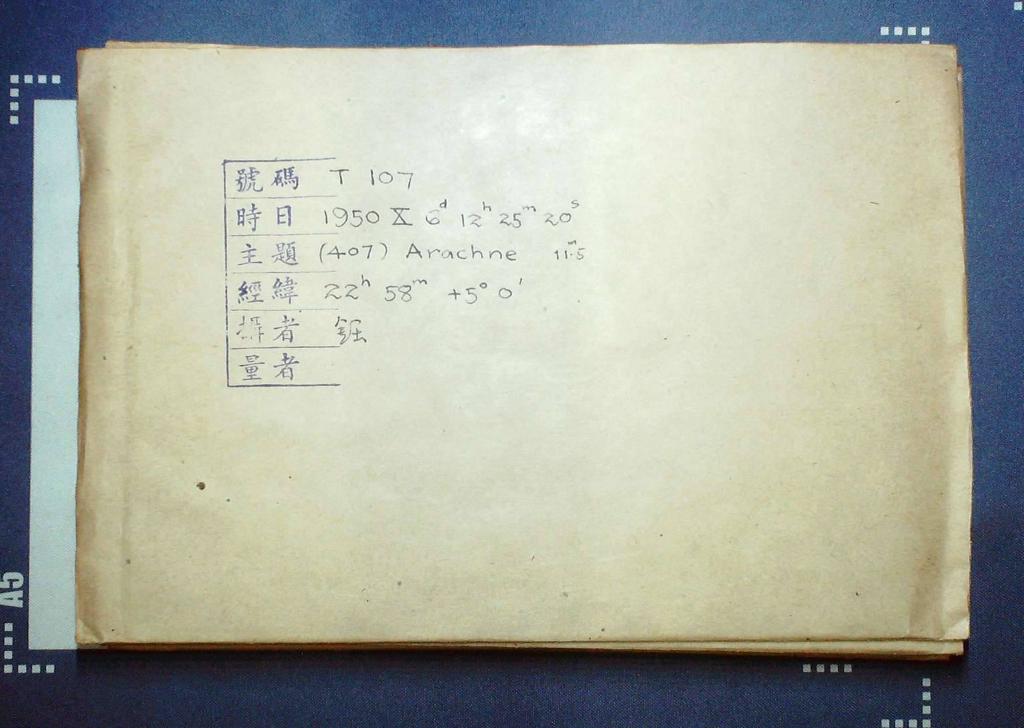 號碼 T 107
時日 1950 X 6ᵈ 12ʰ 25ᵐ 20ˢ
主題 (407) Arachne 11ᵐ.5
經緯 22ʰ 58ᵐ +5° 0'
攝者 鈺
量者
A5